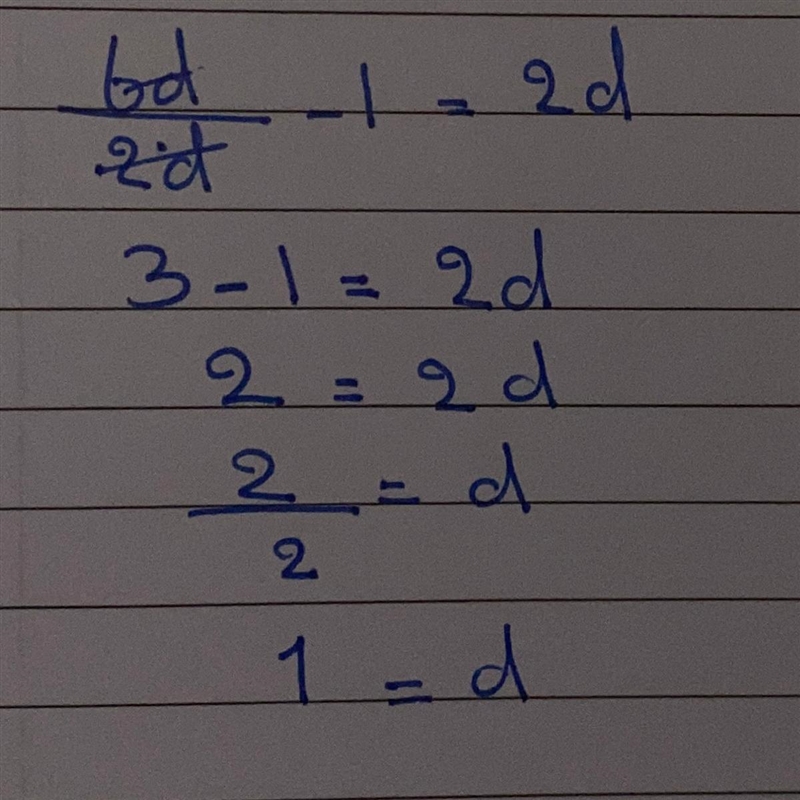 6d/2d - 1 = 2d
3 - 1 = 2d
2 = 2d
2/2 = d
1 = d